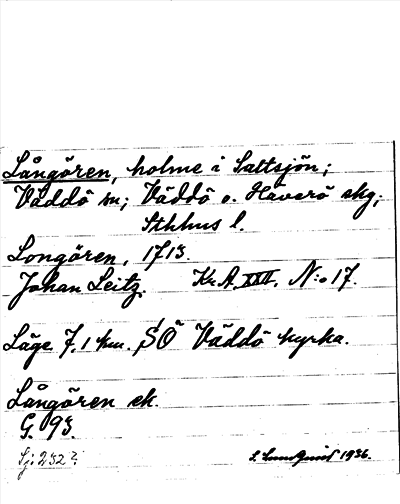 Långören, holme i Saltsjön;
Väddö sn; Väddö o. Häverö skg;
Sthlms l.
Longören, 1713.
Johan Leitz. Kr.A. XXII. N:o 17.
Läge 7,1 km. SÖ Väddö kyrka.
Långören ek.
G. 93.
Sj: 232?
S. Lundquist 1936.